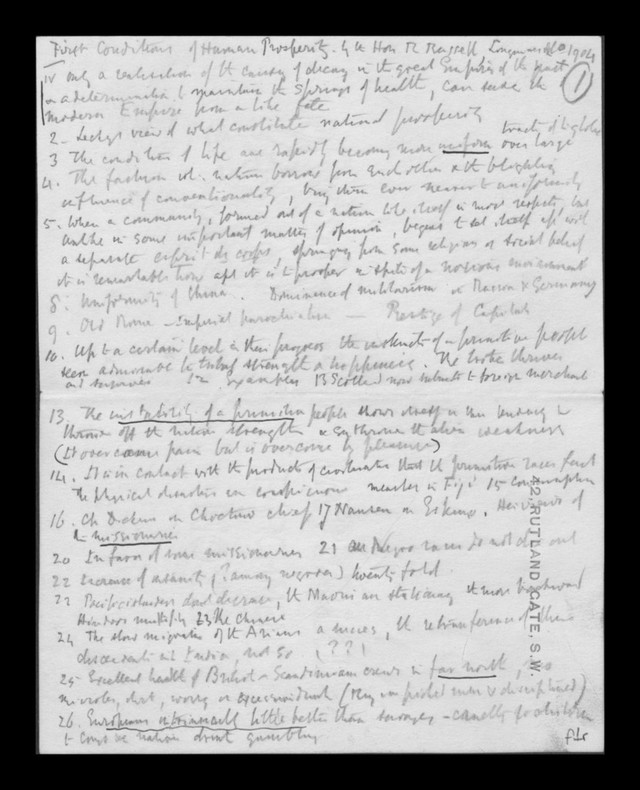 First Conditions of Human Prosperity. by the Hon R Russell Longmans 1904
①
IV only a realisation of the causes of decay in the great Empires of the past
or a determination to maintain the springs of health, can save the
modern Empire from a like fate
2 - Lecky's view of what constitutes national prosperity
3 The conditions of life are rapidly becoming more uniform over large tracts of
4. The fashion wh. nations borrow from each other & the blighting
influence of conventionality, bring them ever nearer to uniformity
5. When a community, formed out of a nation like itself in most respects, but
unlike in some important matter of opinion, begins to set itself off with
a separate esprit de corps, springing from some religious or social belief
it is remarkable how apt it is to prosper in spite of a noxious environment
8. Uniformity of China. Dominance of militarism in Russia & Germany
9. Old Rome - Imperial parochialism - Prestige of Capitals
10. Up to a certain level in their progress the instincts of a primitive people
seem admirable in tribal strength & happiness. The tribe thrives
and survives 12 13 Scotland now submits to foreign merchant
13. The instability of a primitive people shows itself in their tendency to
throw off the native strength & the alien weakness
(It overcomes pain but is overcome by pleasure)
14. It is in contact with the products of civilisation that the primitive races fail
The physical disasters are conspicuous measles in Fiji 15 Consumption
16. Ch Dickens on Choctaw chief 17 Nansen on Eskimo. of
to missionaries
20 In favor of some missionaries 21 All Negro races do not die out
22 Increase of insanity (? among negroes) twenty fold.
23 Pacific islanders do decrease, the Maoris are stationary the more backward
Hindoos multiply 23 The Chinese
24 The slow migration of the Aryans a success, the of their
descendants in India, not so (??)
25 - Excellent health of British & Scandinavian crews in far north, no
microbes, diet, worry or excess incident (very picked men & disciplined)
26. Europeans little better than savages - cruelty to children
& drink gambling
42, RUTLAND GATE, S.W.